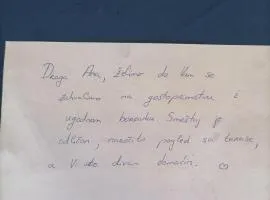 Draga Ana, želimo da Vam se
zahvalimo na gostoprimstvu i
ugodnom boravku. Smeštaj je
odličan, naročito pogled sa terase,
a Vi ste divan domaćin. ♡